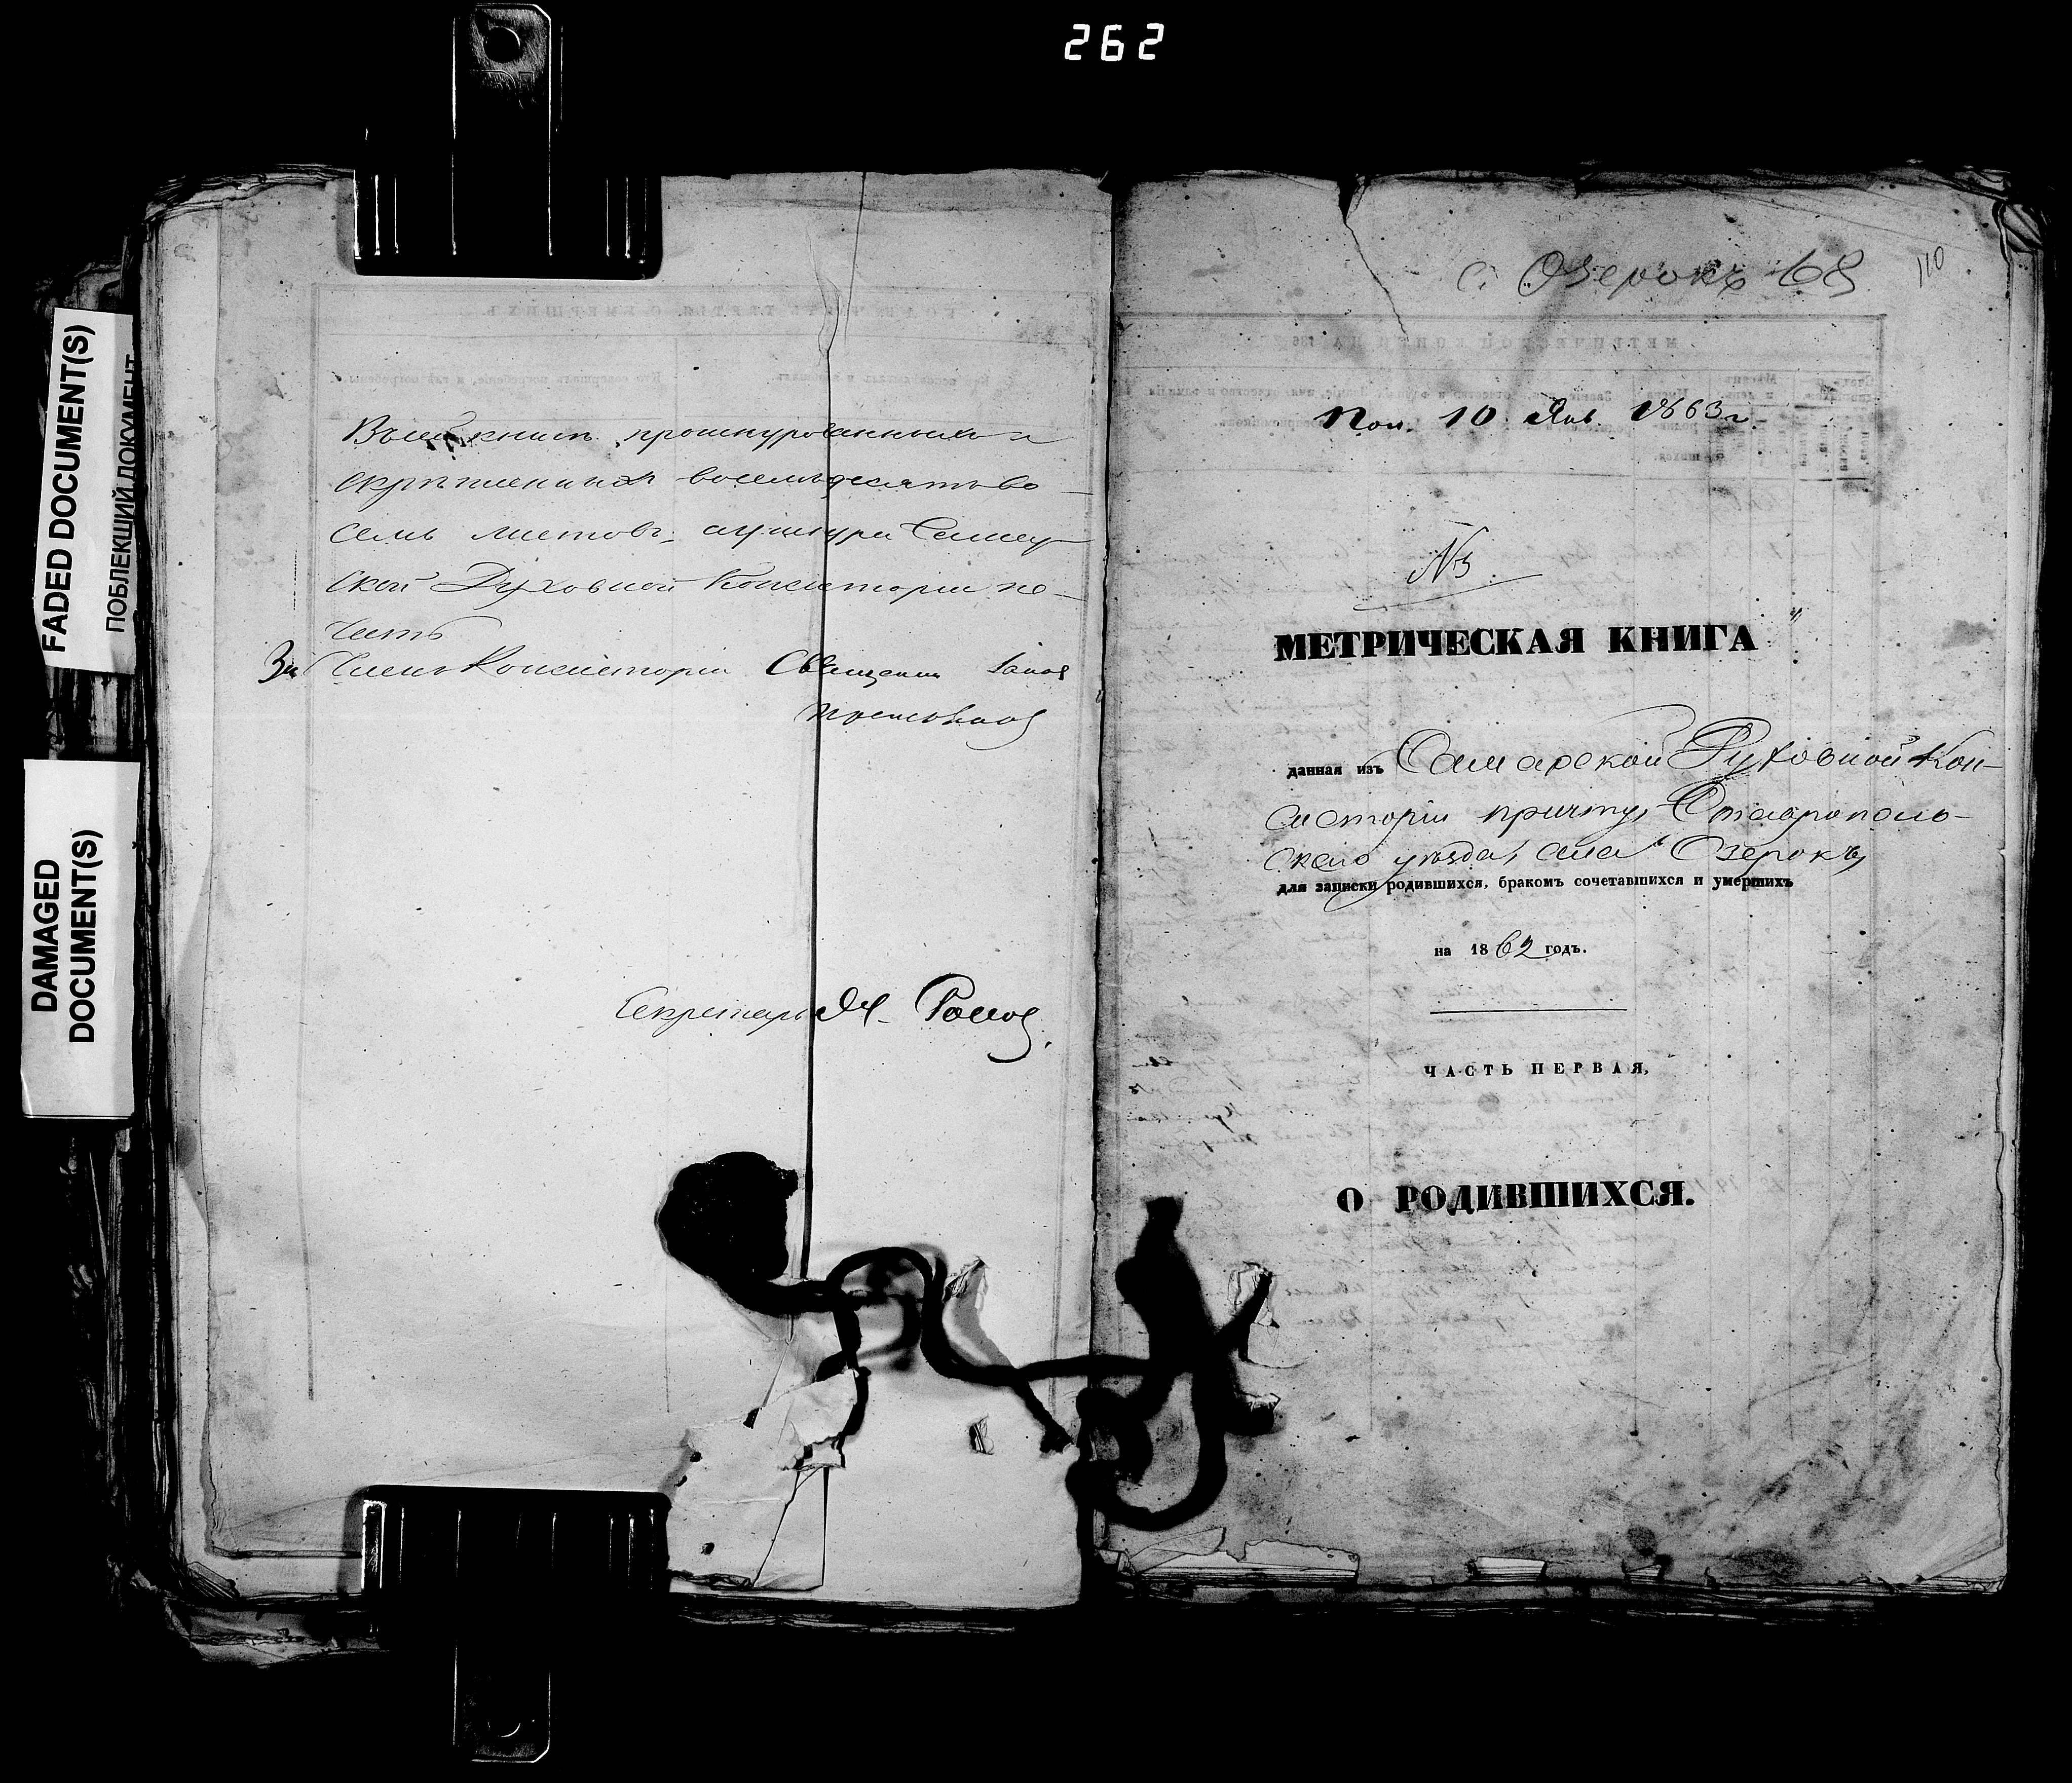 262
FADED DOCUMENT(S)
ПОБЛЕКШИЙ ДОКУМЕНТ
DAMAGED
DOCUMENT(S)
В сей книгѣ прошнурованныхъ и
скрѣпленныхъ восемьдесятъ во-
семь листовъ,
ской Духовной Консисторіи пе-
чать
За Члена Консисторіи Священникъ
Секретарь М. Розовъ.
с. Озерокъ 68
110
Пол. 10 Янв. 1863 г.
№
МЕТРИЧЕСКАЯ КНИГА
данная изъ Самарской Духовной Кон-
систоріи причту, Ставрополь-
скаго уѣзда, села Озерокъ
для записки родившихся, бракомъ сочетавшихся и умершихъ
на 1862 годъ.
ЧАСТЬ ПЕРВАЯ,
О РОДИВШИХСЯ.